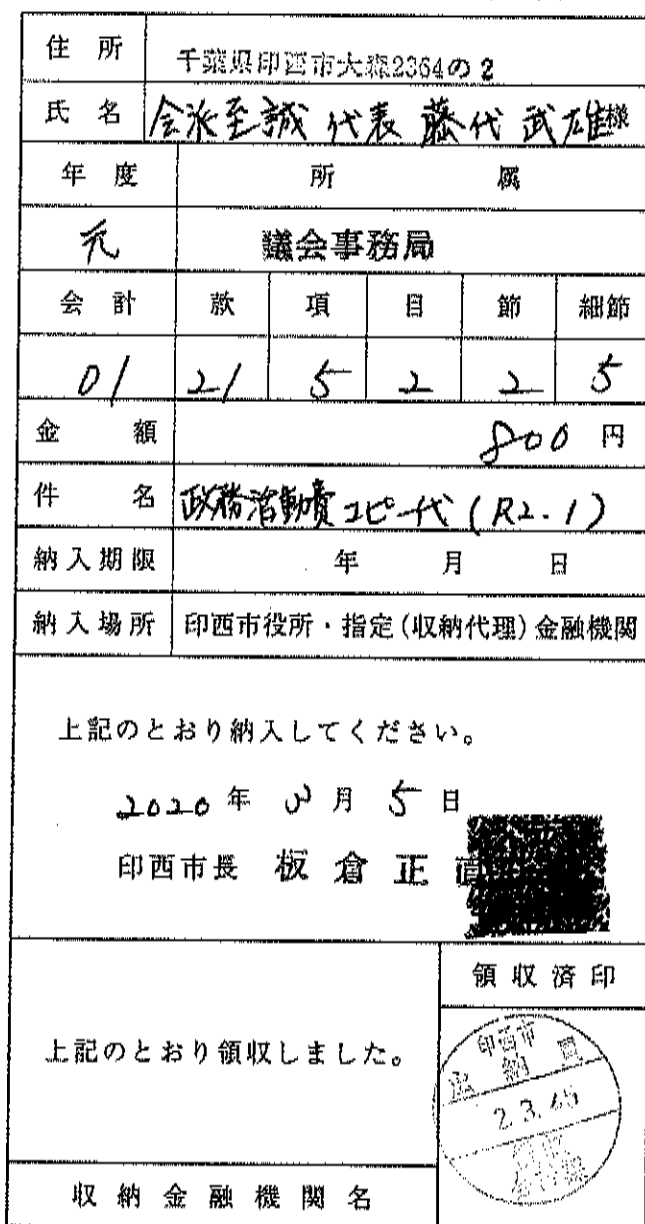 住所 千葉県印西市大森2364の2
氏名 会派至誠 代表 藤代 武雄様
年度 所属
元 議会事務局
会計 款 項 目 節 細節
01 21 5 2 2 5
金額 800円
件名 政務活動費コピー代(R2.1)
納入期限 年 月 日
納入場所 印西市役所・指定(収納代理)金融機関
上記のとおり納入してください。
2020年3月5日
印西市長 板倉正直
領収済印
上記のとおり領収しました。
印西市
出納員
2.3.
収納金融機関名